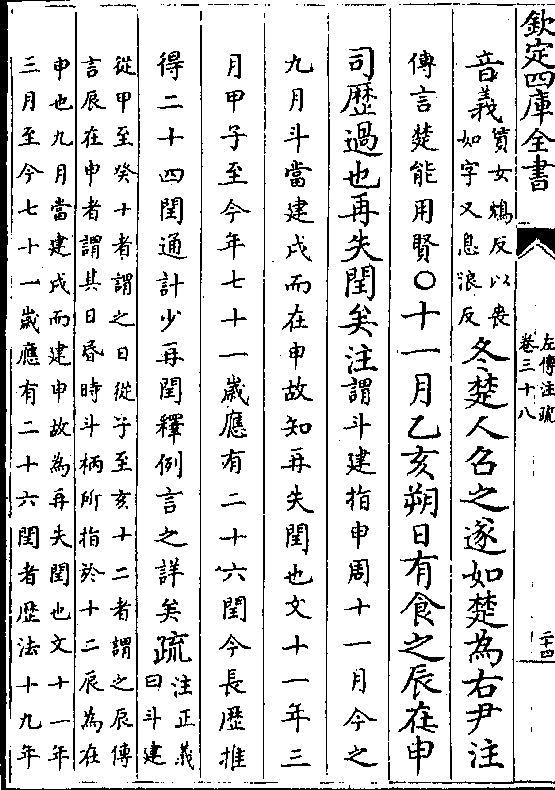 欽定四庫全書
左傳注疏
卷三十八
二十四
音義
賃女鴆反以喪
如字又息浪反
冬楚人召之遂如楚為右尹注
傳言楚能用賢○十一月乙亥朔日有食之辰在申
司歴過也再失閏矣注謂斗建指申周十一月今之
九月斗當建戌而在申故知再失閏也文十一年三
月甲子至今年七十一歲應有二十六閏今長歴推
得二十四閏通計少再閏釋例言之詳矣疏
注正義
曰斗建
從甲至癸十者謂之日從子至亥十二者謂之辰傳
言辰在申者謂其日昏時斗柄所指於十二辰為在
申也九月當建戌而建申故為再失閏也文十一年
三月至今七十一歲應有二十六閏者歴法十九年